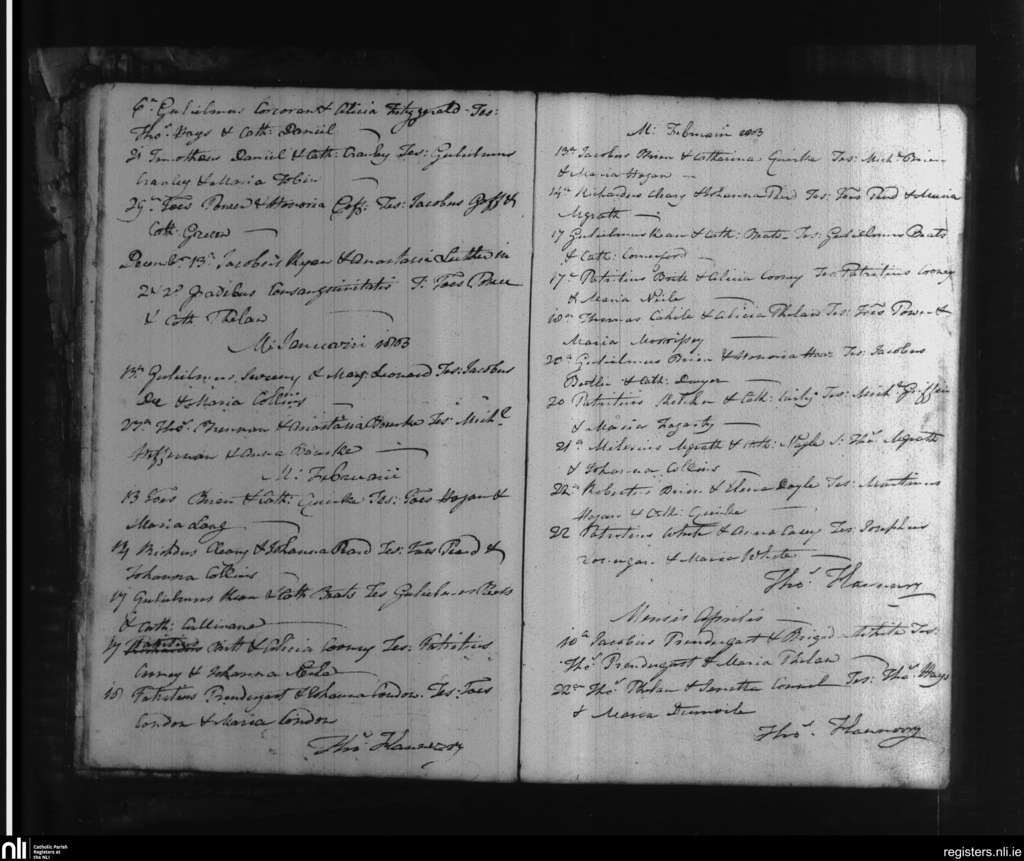 6th Gulielmus Corcoran & Alicia Fitzgerald Tes:
Thos Hays & Cath: Daniel
21 Timotheus Daniel & Cath: Cranley Tes: Gulielmus
Cranley & Maria Tobin
29th Joes Power & Honoria Tes: Jacobus Goff &
Cath: Green
Decembr 13th Jacobus Ryan & Anastasia in
2 & 2o gradibus consanguinitatis T: Joes Power
& Cath Phelan
Ms: Januarii 1813
13th Gulielmus Sweeny & Mary Leonard Tes: Jacobus
Dee & Maria Collins
27th Thos: Brennan & Anastasia Bourke Tes: Michl
Heffernan & Anna Bourke
Ms: Februarii
13 Joes Brien & Cath: Quirke Tes: Joes Hogan &
Maria Lang
14 Richdus Cleary & Johanna Peard Tes: Joes Peard &
Johanna Collins
17 Gulielmus Kean & Cath Beats Tes Gulielmus Beats
& Cath: Cullinane
17 Britt & Alicia Cooney Tes: Patritius
Cooney & Johanna
18 Patritius Prendergast & Johanna Condon Tes: Joes
Condon & Maria Condon
Thos Flannery
Ms: Februarii 1813
13th Jacobus Brien & Catharina Quirke Tes: Michl Brien
& Maria Hogan
14th Richardus Cleary & Johanna Peard Tes: Joes Peard & Maria
Mgrath
17 Gulielmus Kean & Cath: Beats Tes: Gulielmus Beats
& Cath: Comerford
17th Patritius Britt & Alicia Cooney Tes Patritius Cooney
& Maria
18th Thomas Cahile & Alicia Phelan Tes: Joes Power &
Maria Morrissey
20th Gulielmus Brien & Honoria Tes: Jacobus
Butler & Cath: Dwyer
20 Patritius & Cath: Tes: Michl Griffin
& Maria Fogarty
21th Mgrath & Cath: Nagle T: Thos Mgrath
& Johanna Collins
22th Robertus Brien & Elena Doyle Tes: Martinus
Hogan & Cath: Quirke
22 Patritius White & Anna Casey Tes: Josephus
& Maria White
Thos Flannery
Mensis Aprilis
10th Jacobus Prendergast & Brigid Tes:
Thos Prendergast & Maria Phelan
22th Thos Phelan & Connel Tes: Thos Hays
& Maria
Thos Flannery
nli
Catholic Parish
Registers at
the NLI
registers.nli.ie